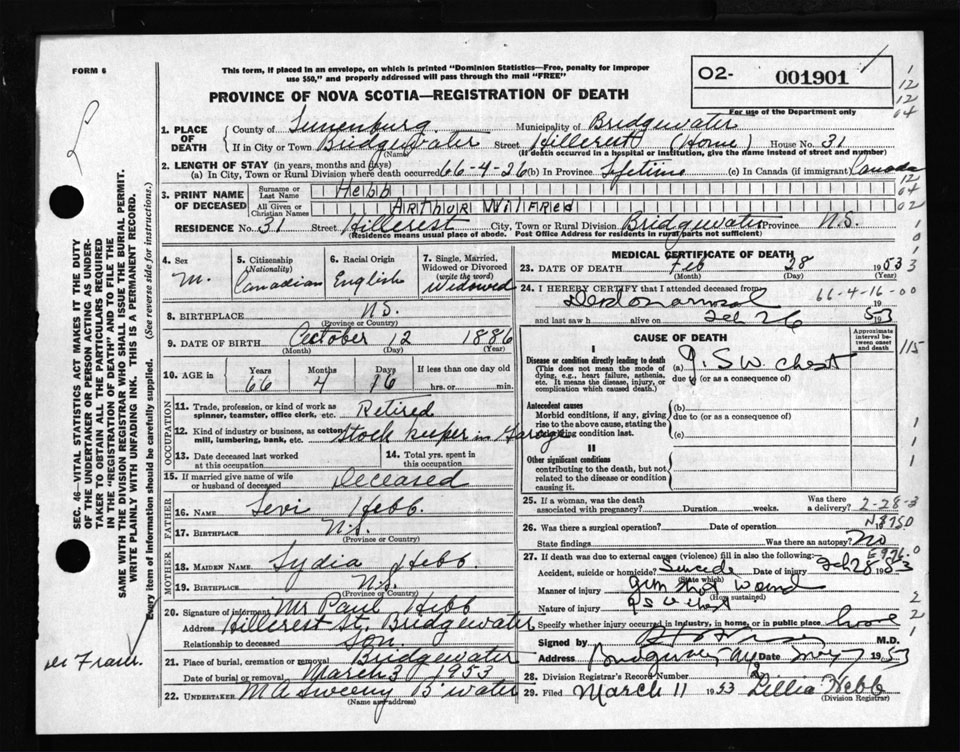 FORM 6
This form, if placed in an envelope, on which is printed "Dominion Statistics—Free, penalty for improper
use $50," and properly addressed will pass through the mail "FREE"
PROVINCE OF NOVA SCOTIA—REGISTRATION OF DEATH
O2- 001901
For use of the Department only
1. PLACE OF DEATH
County of Lunenburg Municipality of Bridgewater
If in City or Town Bridgewater Street Hillcrest (Home) House No. 31
(Name) (If death occurred in a hospital or institution, give the name instead of street and number)
2. LENGTH OF STAY (in years, months and days)
(a) In City, Town or Rural Division where death occurred 66-4-26 (b) In Province Lifetime (c) In Canada (if immigrant) Canada
3. PRINT NAME OF DECEASED
Surname or Last Name Hebb
All Given or Christian Names Arthur Wilfred
RESIDENCE No. 31 Street Hillcrest City, Town or Rural Division Bridgewater Province N.S.
(Residence means usual place of abode. Post Office Address for residents in rural parts not sufficient)
4. Sex M.
5. Citizenship (Nationality) Canadian
6. Racial Origin English
7. Single, Married, Widowed or Divorced (write the word) Widowed
8. BIRTHPLACE N.S.
(Province or Country)
9. DATE OF BIRTH October 12 1886
(Month) (Day) (Year)
10. AGE in Years 66 Months 4 Days 16 If less than one day old
hrs. or min.
OCCUPATION
11. Trade, profession, or kind of work as spinner, teamster, office clerk, etc. Retired
12. Kind of industry or business, as cotton mill, lumbering, bank, etc. Stock keeper in Garage
13. Date deceased last worked at this occupation
14. Total yrs. spent in this occupation
15. If married give name of wife or husband of deceased Deceased
FATHER
16. Name Levi Hebb
17. Birthplace N.S.
(Province or Country)
MOTHER
18. MAIDEN NAME Lydia Hebb
19. Birthplace N.S.
(Province or Country)
20. Signature of informant Mr Paul Hebb
Address Hillcrest St. Bridgewater
Relationship to deceased Son
21. Place of burial, cremation or removal Bridgewater
Date of burial or removal March 3 1953
22. UNDERTAKER M A Sweeny B'water
(Name and address)
MEDICAL CERTIFICATE OF DEATH
23. DATE OF DEATH Feb 28 1953
(Month) (Day) (Year)
24. I HEREBY CERTIFY that I attended deceased from
66-4-16-00
19
and last saw h alive on Feb 26 1953
CAUSE OF DEATH
Approximate interval between onset and death
I
Disease or condition directly leading to death
(This does not mean the mode of dying, e.g., heart failure, asthenia, etc. It means the disease, injury, or complication which caused death.)
(a) G.S.W. chest
due to (or as a consequence of)
Antecedent causes
Morbid conditions, if any, giving rise to the above cause, stating the underlying condition last.
(b)
due to (or as a consequence of)
(c)
II
Other significant conditions
contributing to the death, but not related to the disease or condition causing it.
25. If a woman, was the death associated with pregnancy? Duration weeks. Was there a delivery?
2-28-3
N8750
26. Was there a surgical operation? Date of operation
State findings Was there an autopsy? No
27. If death was due to external causes (violence) fill in also the following:
E976.0
Accident, suicide or homicide? Suicide Date of injury Feb 28 1953
(State which)
Manner of injury gun shot wound
(How sustained)
Nature of injury g s w chest
Specify whether injury occurred in industry, in home, or in public place home
Signed by M.D.
Address Date 1953
28. Division Registrar's Record Number 2
29. Filed March 11 1953 Lillia Hebb
(Division Registrar)
SEC. 46—VITAL STATISTICS ACT MAKES IT THE DUTY
OF THE UNDERTAKER OR PERSON ACTING AS UNDER-
TAKER TO OBTAIN ALL THE PARTICULARS REQUIRED
IN THE "REGISTRATION OF DEATH" AND TO FILE THE
SAME WITH THE DIVISION REGISTRAR WHO SHALL ISSUE THE BURIAL PERMIT.
WRITE PLAINLY WITH UNFADING INK. THIS IS A PERMANENT RECORD.
Every item of information should be carefully supplied. (See reverse side for instructions.)
1
12
12
04
12
04
02
1
0
1
3
115
1
1
1
2
2
1